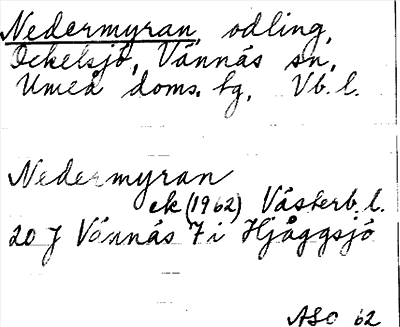 Nedermyran, odling,
Ockelsjö, Vännäs sn,
Umeå doms. tg, Vb. l.
Nedermyran
ek (1962) Västerb. l.
20 J Vännäs 7 i Hjåggsjö
ASO 62